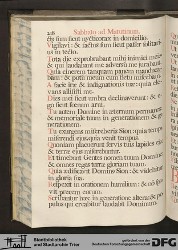 Sabbato ad Matutinum.
Vigilavi: & factus sum sicut passer solitarius in tecto.
Tota die exprobrabant mihi inimici mei:
Quia cinerem tanquam panem manducabam
A facie iræ & indignationis tuæ: quia
Dies mei sicut umbra declinaverunt: & ego sicut fœnum arui.
Tu autem Domine in æternum permanes: & memoriale tuum in generationem & generationem.
Tu exurgens misereberis Sion: quia tempus miserendi ejus, quia venit tempus.
Quoniam placuerunt servis tuis lapides ejus: & terræ ejus miserebuntur.
Et timebunt Gentes nomen tuum Domine, & omnes reges terræ gloriam tuam.
Quia ædificavit Dominus Sion: & videbitur in gloria sua.
Respexit in orationem humilium: & non sprevit precem eorum.
Scribantur hæc in generatione altera: & populus qui creabitur laudabit Dominum.
Stadtbibliothek
und Stadtarchiv Trier
gefördert von der
Deutschen Forschungsgemeinschaft
DFG